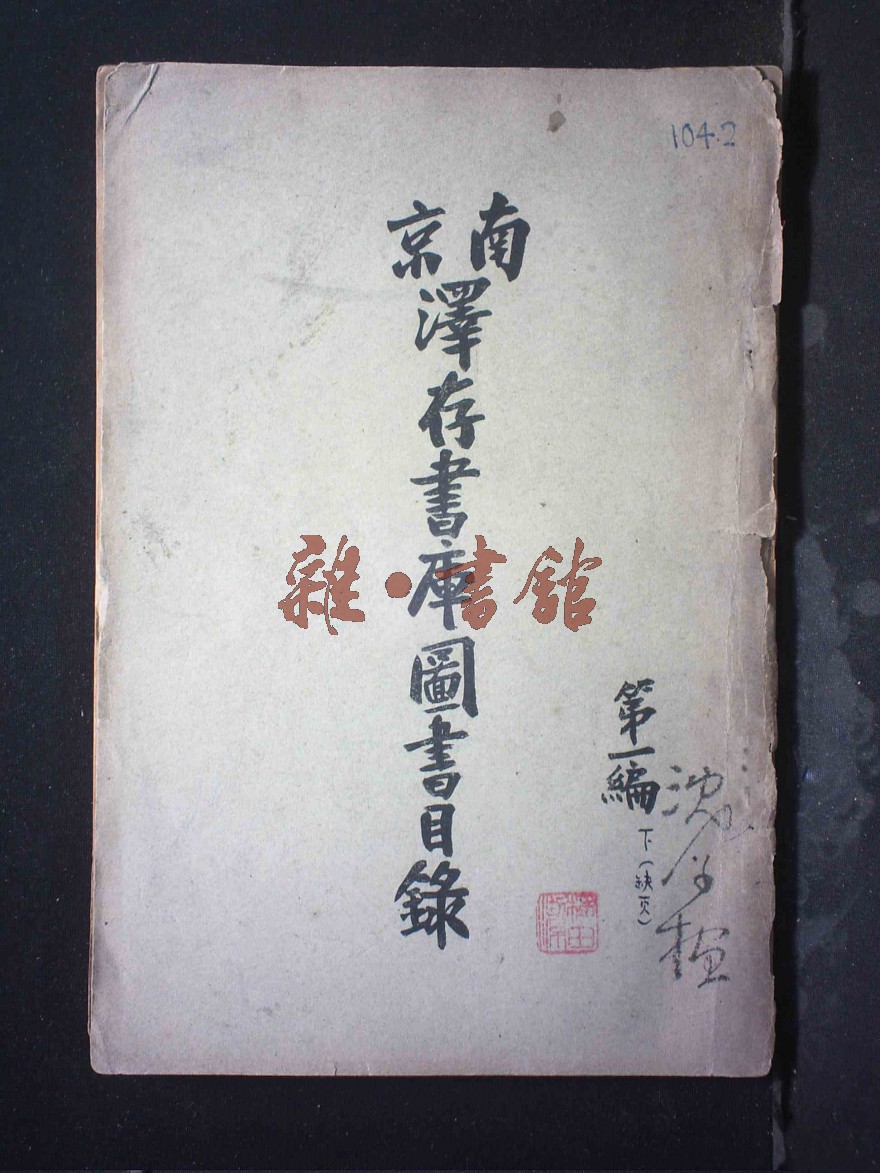 104.2
南京
澤存書庫圖書目錄
第一編
下(缺页)
雜·書館